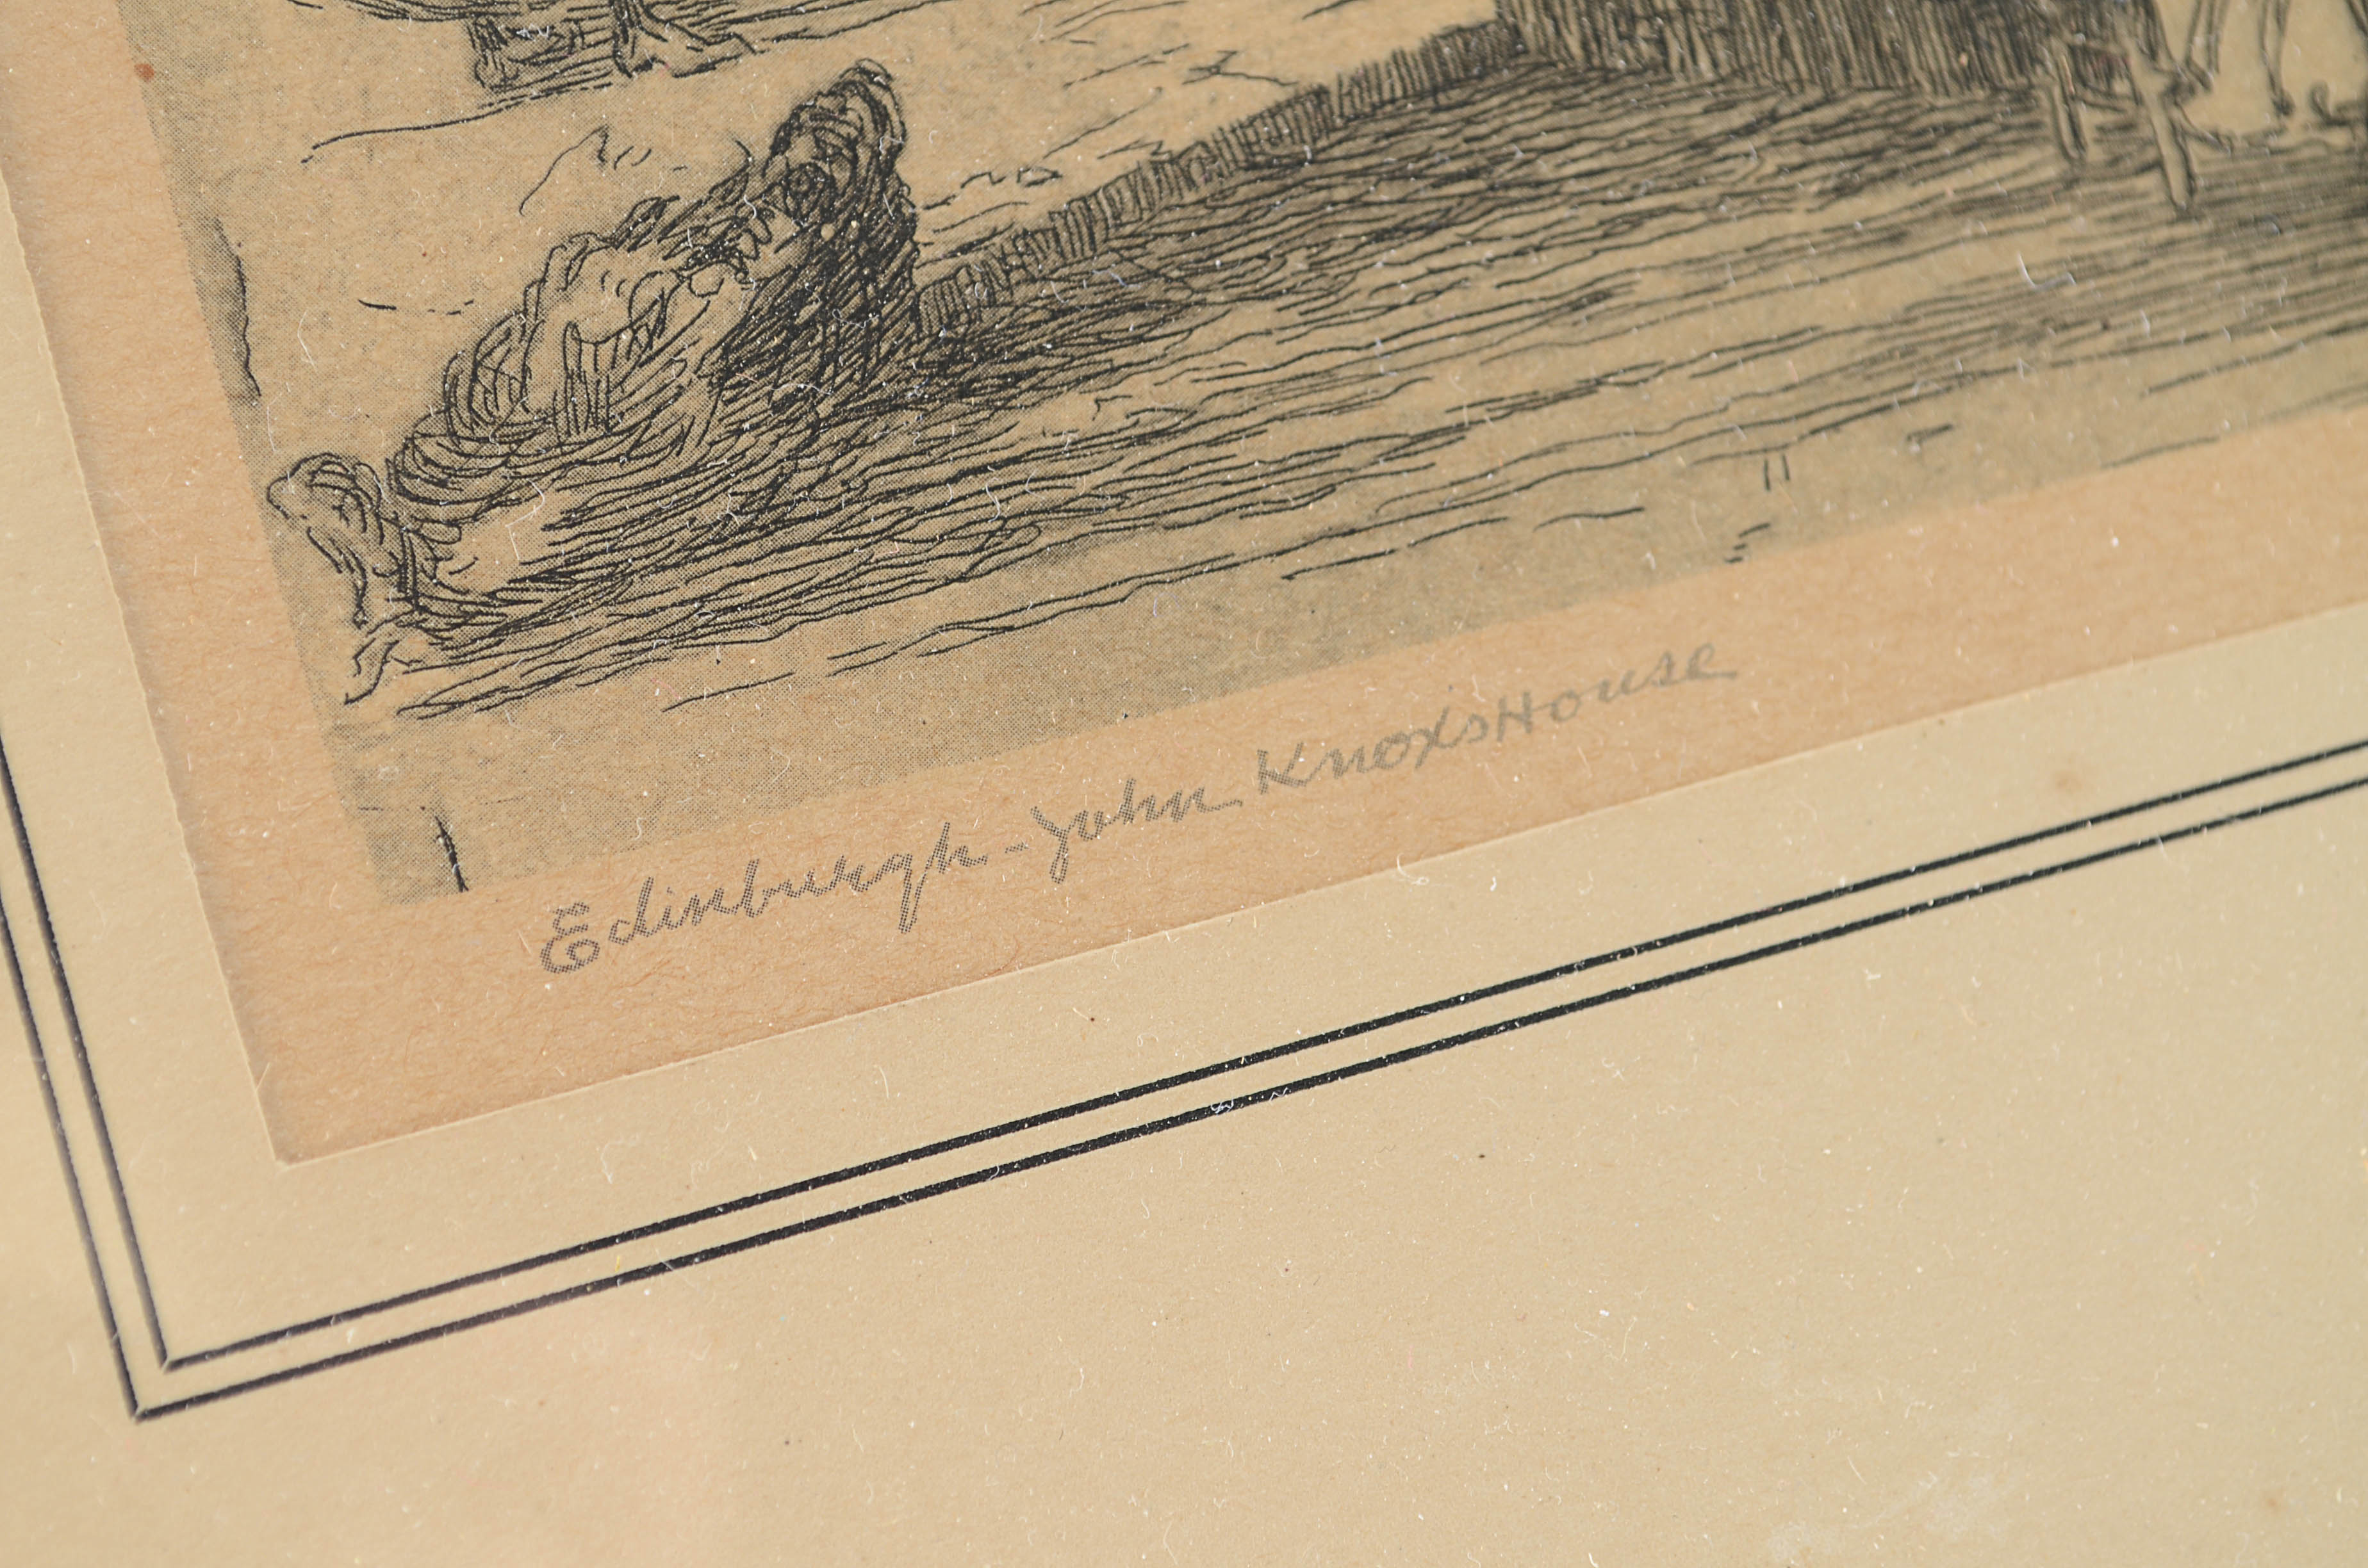 Edinburgh - John Knoxs House